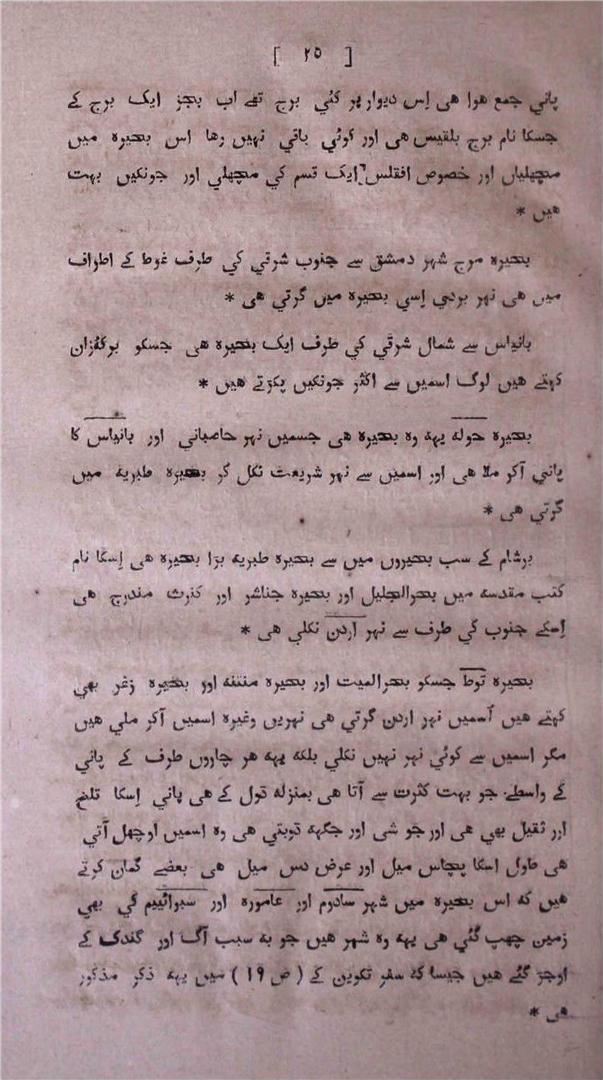 [ ٢٥ ]
پاني جمع هوا هی اِس دیوار پر کئي برج تھے اب بجز ایک برج کے
جسکا نام برج بلقیس هی اور کوئي باقي نہیں رها اس بحیرہ میں
مچھلیاں اور خصوص افقلس [ایک قسم کي مچھلي اور جونکیں بہت
هیں *
بحیرہ مرج شہر دمشق سے جنوب شرقي کي طرف غوط کے اطراف
میں هی نہر بردي اِسي بحیرہ میں گرتي هی *
بانیاس سے شمال شرقي کي طرف ایک بحیرہ هی جسکو برکةران
کہتے هیں لوگ اسمیں سے اکثر جونکیں پکڑتے هیں *
بحیرہ حولہ یہہ وہ بحیرہ هی جسمیں نہر حاصباني اور بانیاس کا
پانی آکر ملا هی اور اسمیں سے نہر شریعت نکل کر بحیرہ طبریہ میں
گرتي هی *
برشام کے سب بحیروں میں سے بحیرہ طبریہ بڑا بحیرہ هی اِسکا نام
کتب مقدسہ میں بحرالجلیل اور بحیرہ جناشر اور کنرث مندرج هی
اِسکے جنوب کي طرف سے نہر اردن نکلي هی *
بحیرہ توط جسکو بحرالمیت اور بحیرہ منتنہ اور بحیرہ زغر بھي
کہتے هیں اُسمیں نہر اردن گرتي هی نہریں وغیرہ اسمیں آکر ملي هیں
مگر اسمیں سے کوئي نہر نہیں نکلي بلکہ یہہ هر چاروں طرف کے پاني
کے واسطے جو بہت کثرت سے آتا هی بمنزلہ قول کے هی پاني اِسکا تلخ
ارر ثقیل بھي هی اور جو شی اور جگہہ ڈوبتي هی وہ اسمیں اوچھل آتي
هی طول اسکا پچاس میل اور عرض دس میل هی بعضے گمان کرتے
هیں کہ اس بحیرہ میں شہر سادوم اور عامورہ اور سبوائییم کي بھي
زمین چھپ گئي هی یہہ وہ شہر هیں جو بہ سبب آگ اور گندک کے
اوجڑ گئے هیں جیسا کہ سفر تکوین کے ( ص ١٩ ) میں یہہ ذکر مذکور
هی *